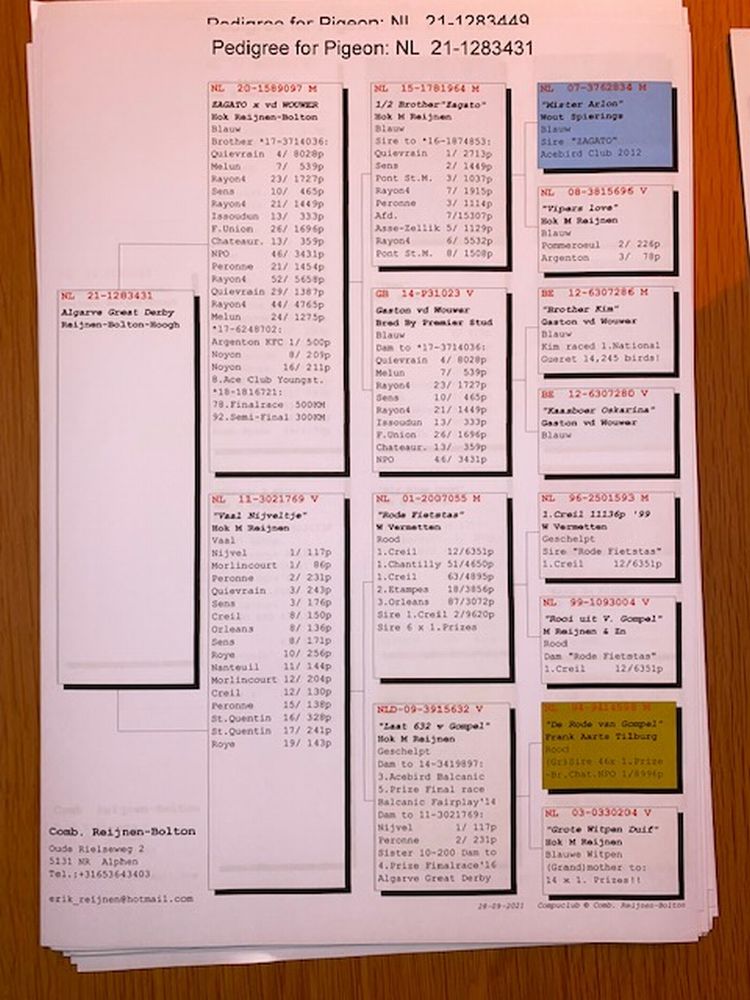 Pedigree for Pigeon: NL 21-1283449
Pedigree for Pigeon: NL 21-1283431
NL 21-1283431
Algarve Great Derby
Reijnen-Bolton-Hoogh
NL 20-1589097 M
ZAGATO x vd WOUWER
Hok Reijnen-Bolton
Blauw
Brother *17-3714036:
Quievrain 4/ 8028p
Melun 7/ 539p
Rayon4 23/ 1727p
Sens 10/ 465p
Rayon4 21/ 1449p
Issoudun 13/ 333p
F.Union 26/ 1696p
Chateaur. 13/ 359p
NPO 46/ 3431p
Peronne 21/ 1454p
Rayon4 52/ 5658p
Quievrain 29/ 1387p
Rayon4 44/ 4765p
Melun 24/ 1275p
*17-6248702:
Argenton KFC 1/ 500p
Noyon 8/ 209p
Noyon 16/ 211p
8.Ace Club Youngst.
*18-1816721:
78.Finalrace 500KM
92.Semi-Final 300KM
NL 11-3021769 V
"Vaal Nijveltje"
Hok M Reijnen
Vaal
Nijvel 1/ 117p
Morlincourt 1/ 86p
Peronne 2/ 231p
Quievrain 3/ 243p
Sens 3/ 176p
Creil 8/ 150p
Orleans 8/ 136p
Sens 8/ 171p
Roye 10/ 256p
Nanteuil 11/ 144p
Morlincourt 12/ 204p
Creil 12/ 130p
Peronne 15/ 138p
St.Quentin 16/ 328p
St.Quentin 17/ 241p
Roye 19/ 143p
NL 15-1781964 M
1/2 Brother"Zagato"
Hok M Reijnen
Blauw
Sire to *16-1874853:
Quievrain 1/ 2713p
Sens 2/ 1449p
Pont St.M. 3/ 1037p
Rayon4 7/ 1915p
Peronne 3/ 1114p
Afd. 7/15307p
Asse-Zellik 5/ 1129p
Rayon4 6/ 5532p
Pont St.M. 8/ 1508p
GB 14-P31023 V
Gaston vd Wouwer
Bred By Premier Stud
Blauw
Dam to *17-3714036:
Quievrain 4/ 8028p
Melun 7/ 539p
Rayon4 23/ 1727p
Sens 10/ 465p
Rayon4 21/ 1449p
Issoudun 13/ 333p
F.Union 26/ 1696p
Chateaur. 13/ 359p
NPO 46/ 3431p
NL 01-2007055 M
"Rode Fietstas"
W Vermetten
Rood
1.Creil 12/6351p
1.Chantilly 51/4650p
1.Creil 63/4895p
2.Etampes 18/3856p
3.Orleans 87/3072p
Sire 1.Creil 2/9620p
Sire 6 x 1.Prizes
NLD-09-3915632 V
"Laat 632 v Gompel"
Hok M Reijnen
Geschelpt
Dam to 14-3419897:
3.Acebird Balcanic
5.Prize Final race
Balcanic Fairplay'14
Dam to 11-3021769:
Nijvel 1/ 117p
Peronne 2/ 231p
Sister 10-200 Dam to
4.Prize Finalrace'16
Algarve Great Derby
NL 07-3762834 M
"Mister Arlon"
Wout Spierings
Blauw
Sire "ZAGATO"
Acebird Club 2012
NL 08-3815696 V
"Vipers love"
Hok M Reijnen
Blauw
Pommeroeul 2/ 226p
Argenton 3/ 78p
BE 12-6307286 M
"Brother Kim"
Gaston vd Wouwer
Blauw
Kim raced 1.National
Gueret 14,245 birds!
BE 12-6307280 V
"Kaasboer Oskarina"
Gaston vd Wouwer
Blauw
NL 96-2501593 M
1.Creil 11136p '99
W Vermetten
Geschelpt
Sire "Rode Fietstas"
1.Creil 12/6351p
NL 99-1093004 V
"Rooi uit V. Gompel"
M Reijnen & Zn
Rood
Dam "Rode Fietstas"
1.Creil 12/6351p
NL M
"De Rode van Gompel"
Frank Aarts Tilburg
Rood
(Gr)Sire 46x 1.Prize
-Br.Chat.NPO 1/8996p
NL 03-0330204 V
"Grote Witpen Duif"
Hok M Reijnen
Blauwe Witpen
(Grand)mother to:
14 x 1. Prizes!!
Comb. Reijnen-Bolton
Oude Rielseweg 2
5131 NR Alphen
Tel.:+31653643403
erik_reijnen@hotmail.com
28-09-2021 Compuclub © Comb. Reijnen-Bolton